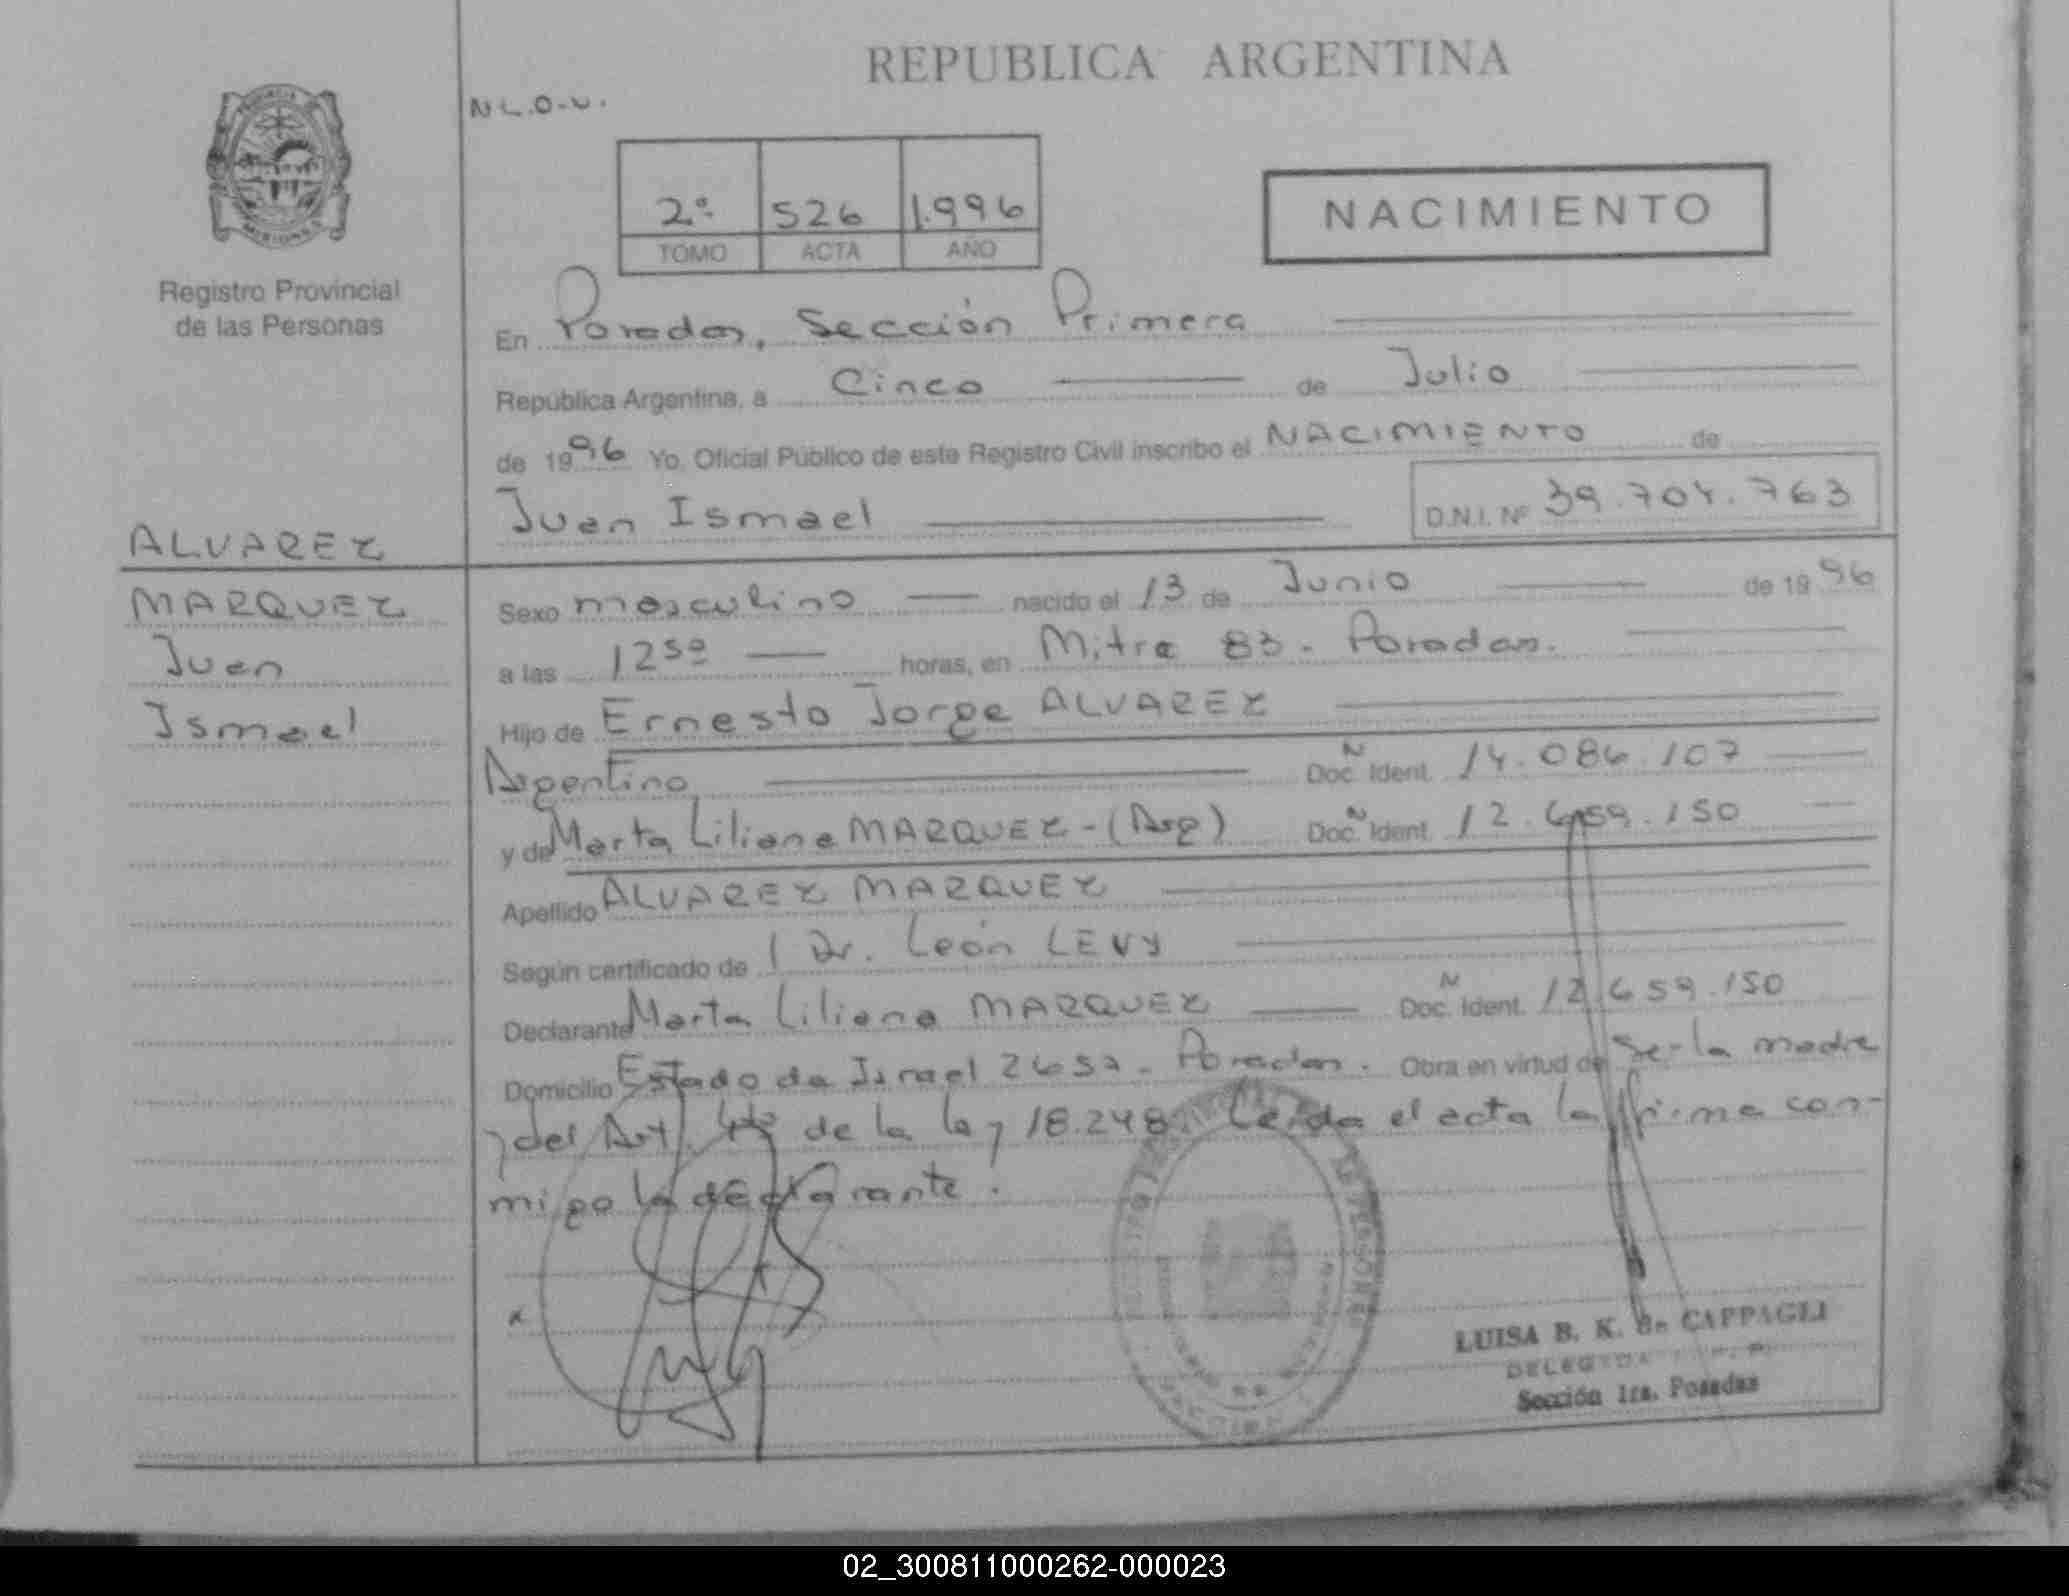 REPUBLICA ARGENTINA
N L.O-U.
2º 526 1.996
TOMO ACTA AÑO
NACIMIENTO
MISIONES
Registro Provincial
de las Personas
En Posadas, Sección Primera
República Argentina, a Cinco de Julio
de 1996 Yo, Oficial Público de este Registro Civil inscribo el NACIMIENTO de
Juan Ismael D.N.I. Nº 39.704.763
ALVAREZ
MARQUEZ
Juan
Ismael
Sexo masculino nacido el 13 de Junio de 1996
a las 12 50 horas, en Mitre 83. Posadas.
Hijo de Ernesto Jorge ALVAREZ
Argentino Doc. N Ident. 14.086.107
y de Marta Liliana MARQUEZ - (Arg) Doc. N Ident. 12.659.150
Apellido ALVAREZ MARQUEZ
Según certificado de l Dr. León LEVY
Declarante Marta Liliana MARQUEZ Doc. N Ident. 12.659.150
Domicilio Estado de Israel 2657 - Posadas. Obra en virtud de Ser la madre
y del Art. 4to de la ley 18.248. Leída el acta la firma con-
migo la declarante.
x
LUISA B. K. de CAPPAGLI
DELEGADA
Sección 1ra. Posadas
02_300811000262-000023